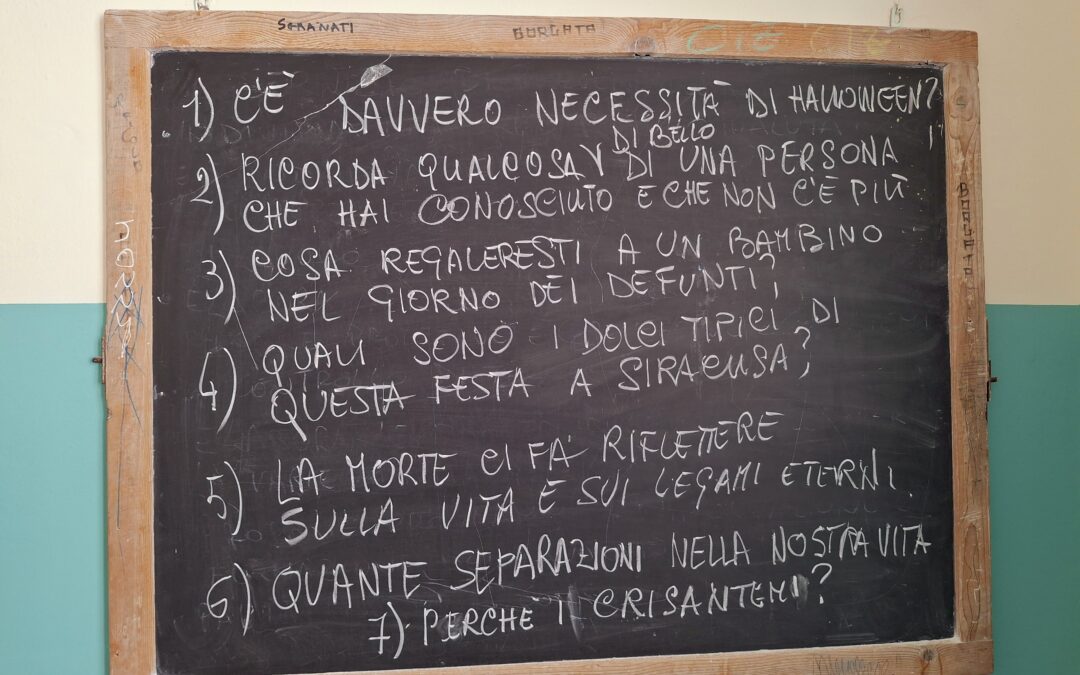 SGRANATI
BORGATA
CIE
1) C'È DAVVERO NECESSITÀ DI HALLOWEEN?
DI BELLO
2) RICORDA QUALCOSA DI UNA PERSONA
CHE HAI CONOSCIUTO E CHE NON C'È PIÙ
3) COSA REGALERESTI A UN BAMBINO
NEL GIORNO DEI DEFUNTI?
4) QUALI SONO I DOLCI TIPICI DI
QUESTA FESTA A SIRACUSA?
5) LA MORTE CI FÀ RIFLETTERE
SULLA VITA E SUI LEGAMI ETERNI.
6) QUANTE SEPARAZIONI NELLA NOSTRA VITA
7) PERCHÈ I CRISANTEMI?
BORGATA